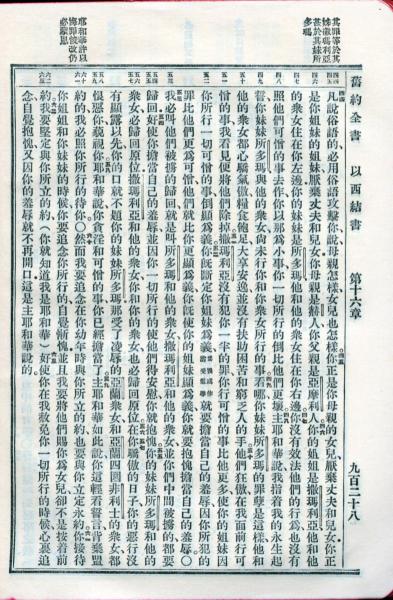 舊約全書 以西結書 第十六章 九百二十八
其罪等於其
姊撒瑪利亞
甚於其妹所
多瑪
凡說俗語的必用俗語攻擊你說母親怎樣女兒也怎樣你正是你母親的女兒厭棄丈夫和兒女你正
是你姐妹的姐妹厭棄丈夫和兒女你母親是赫人你父親是亞摩利人你的姐姐是撒瑪利亞他和他
的衆女住在你左邊你的妹妹是所多瑪他和他的衆女住在你右邊你沒有效法他們的行為也沒有
照他們可憎的事去作你以那為小事你一切所行的倒比他們更壞主耶和華說我指着我的永生起
誓你妹妹所多瑪與他的衆女尚未行你和你衆女所行的事看哪你妹妹所多瑪的罪孽是這樣他和
他的衆女都心驕氣傲糧食飽足大享安逸並沒有扶助困苦和窮乏人的手他們狂傲在我面前行可
憎的事我看見便將他們除掉撒瑪利亞沒有犯你一半的罪你行可憎的事比他更多使你的姐妹因
你所行一切可憎的事倒顯為義你既斷定你姐妹為義就要擔當自己的羞辱因你所犯的
罪比他們更為可憎他們就比你更顯為義你既使你的姐妹顯為義你就要抱愧擔當自己的羞辱○
我必叫他們被擄的歸回就是叫所多瑪和他的衆女撒瑪利亞和他的衆女並你們中間被擄的都要
歸回好使你擔當自己的羞辱並因你一切所行的使他們得安慰你就抱愧你的妹妹所多瑪和他的
衆女必歸回原位撒瑪利亞和他的衆女你和你的衆女也必歸回原位在你驕傲的日子你的惡行沒
有顯露以先你的口就不題你的妹妹所多瑪那受了凌辱的亞蘭衆女和亞蘭四圍非利士的衆女都
恨惡你藐視你耶和華說你貪淫和可憎的事你已經擔當了主耶和華如此說你這輕看誓言背棄盟
約的我必照你所行的待你○然而我要追念在你幼年時與你所立的約也要與你立定永約你接待
你姐姐和你妹妹的時候你要追念你所行的自覺慚愧並且我要將他們賜你為女兒卻不是按着前
約我要堅定與你所立的約(你就知道我是耶和華)好使你在我赦免你一切所行的時候心裏追
念自覺抱愧又因你的羞辱就不再開口這是主耶和華說的